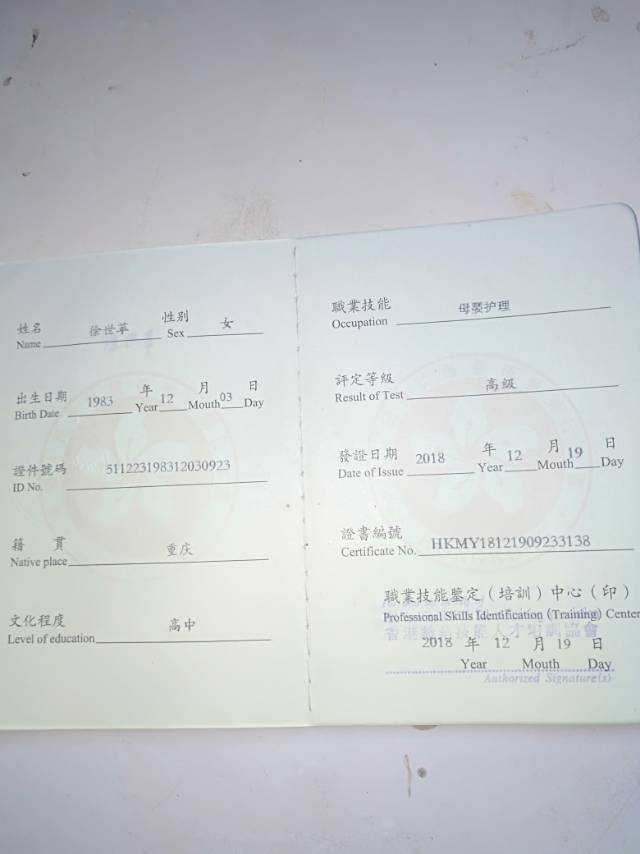 姓名
Name 徐世苹 性别
Sex 女
出生日期 年 月 日
Birth Date 1983 Year 12 Mouth 03 Day
證件號碼
ID No. 511223198312030923
籍 貫
Native place 重庆
文化程度
Level of education 高中
職業技能
Occupation 母婴护理
評定等級
Result of Test 高級
發證日期 年 月 日
Date of Issue 2018 Year 12 Mouth 19 Day
證書編號
Certificate No. HKMY18121909233138
職業技能鉴定（培訓）中心（印）
Professional Skills Identification (Training) Center
2018 年 12 月 19 日
Year Mouth Day
Authorized Signature(s)